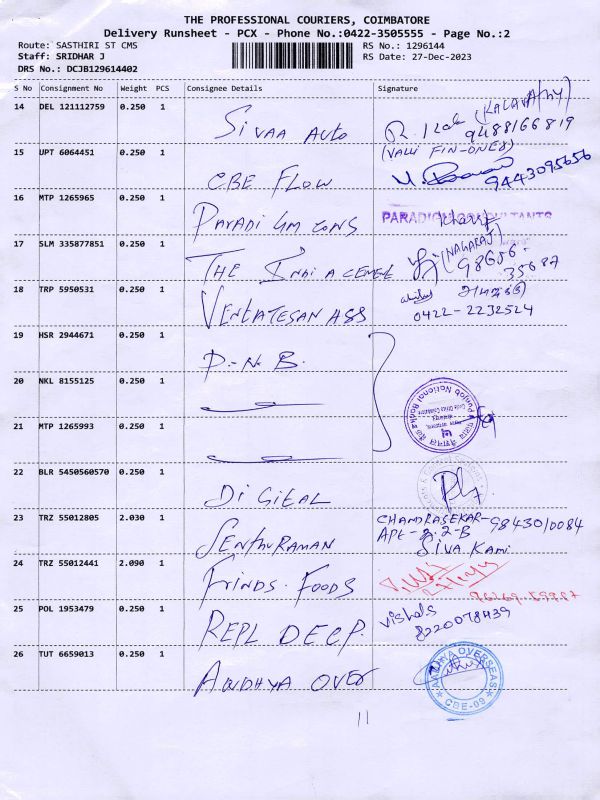 THE PROFESSIONAL COURIERS, COIMBATORE
Delivery Runsheet - PCX - Phone No.:0422-3505555 - Page No.:2
Route: SASTHIRI ST CMS
RS No.: 1296144
Staff: SRIDHAR J
RS Date: 27-Dec-2023
DRS No.: DCJB129614402
S No Consignment No Weight PCS Consignee Details Signature
14 DEL 121112759 0.250 1 SIVAA AUTO
(KALAVATHY)
9488166819
(VALLI FIN-ONES)
15 UPT 6064451 0.250 1 CBE FLOW
9443095656
16 MTP 1265965 0.250 1 PARADIGM CONS PARADIGM CONSULTANTS
17 SLM 335877851 0.250 1 THE INDIA CEMENT (NAGARAJ)
98656-
35687
18 TRP 5950531 0.250 1 VENKATESAN ASS
0422-2232524
19 HSR 2944671 0.250 1 P.N.B.
20 NKL 8155125 0.250 1
Punjab National Bank
21 MTP 1265993 0.250 1
22 BLR 5450560570 0.250 1 DIGITAL
23 TRZ 55012805 2.030 1 SENTHURAMAN CHANDRASEKAR-9843010084
SIVA KAMI
24 TRZ 55012441 2.090 1 FRINDS. FOODS
25 POL 1953479 0.250 1 REPL DECP. Vishals
8220078439
26 TUT 6659013 0.250 1 AANDHYA OVER AANDHYA OVERSEAS
CBE-09
11